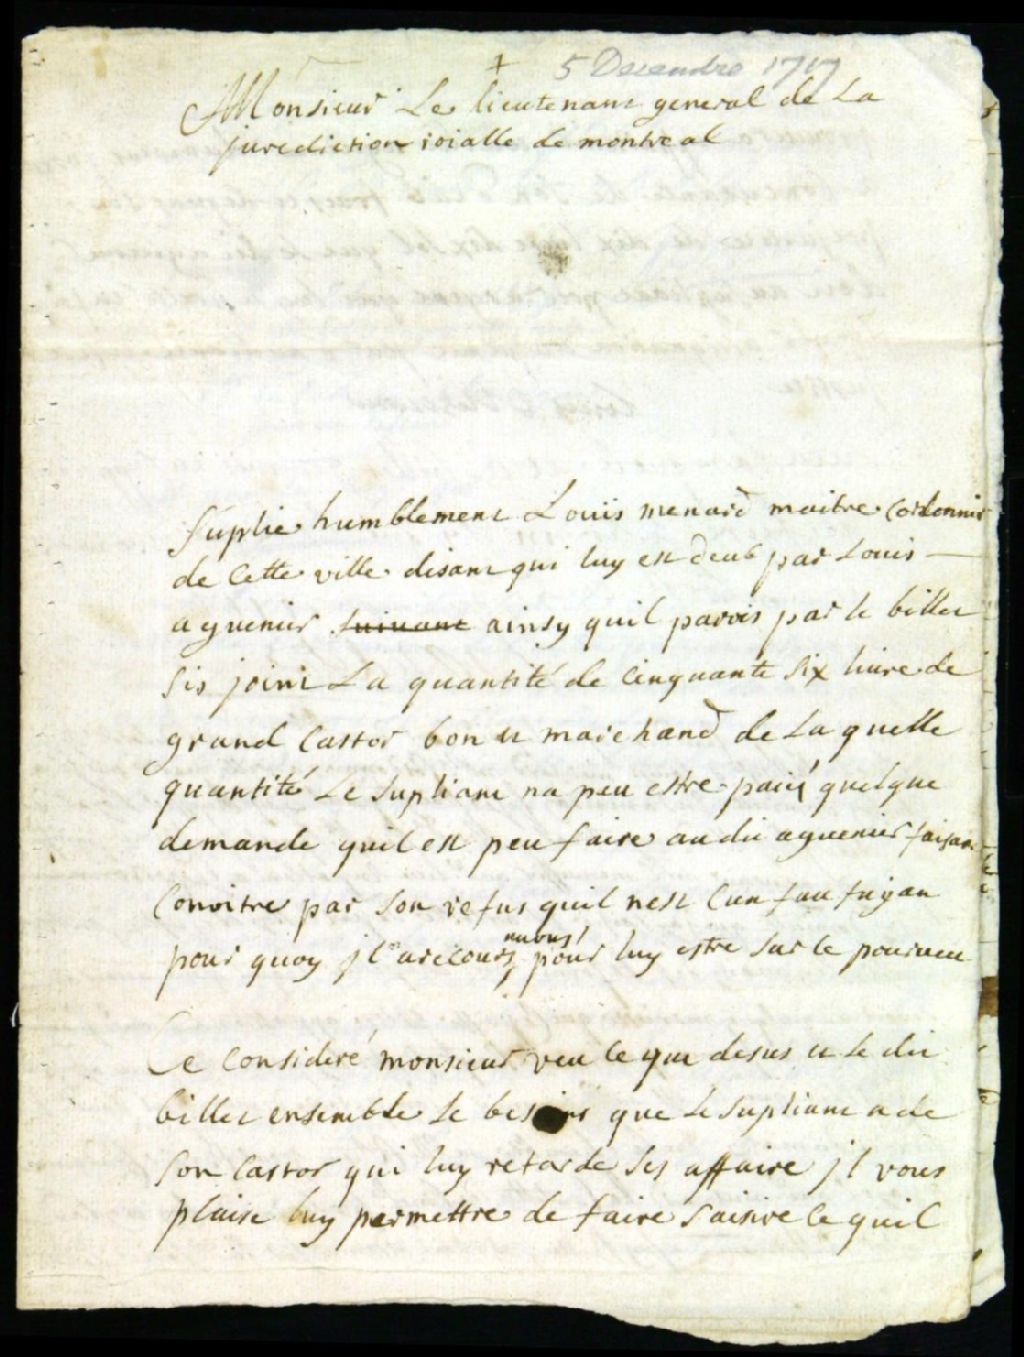 5 Decembre 1717
Monsieur Le lieutenant general de La
jurediction roialle de montreal
Suplie humblement Louis menard maitre Cordonnier
de Cette ville disant qui luy est deub par Louis
aguenier suivant ainsy quil parois par le billet
sis joint La quantité de Cinquante six livre de
grand Castor bon et marchand de La quelle
quantité Le supliant na peu estre paiié quelque
demande quil est peu faire au dit aguenier faisant
Conoitre par son refus quil nest Cun faufuyan
pour quoy jl a recours a vous pour luy estre sur ce pourveu
Ce Consideré monsieur veu ce que desus et le dit
billet ensemble le besoins que Le supliant a de
son Castor qui luy retarde ses affaire jl vous
plaise luy permettre de faire saisire ce quil